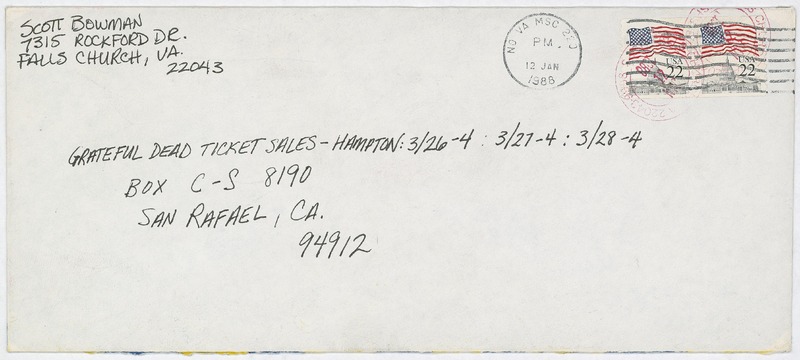 SCOTT BOWMAN
7315 ROCKFORD DR.
FALLS CHURCH, VA.
22043
NO VA MSC 220
PM
12 JAN
1988
USA
22
USA
22
GRATEFUL DEAD TICKET SALES - HAMPTON: 3/26-4 : 3/27-4 : 3/28-4
BOX C-S 8190
SAN RAFAEL, CA.
94912